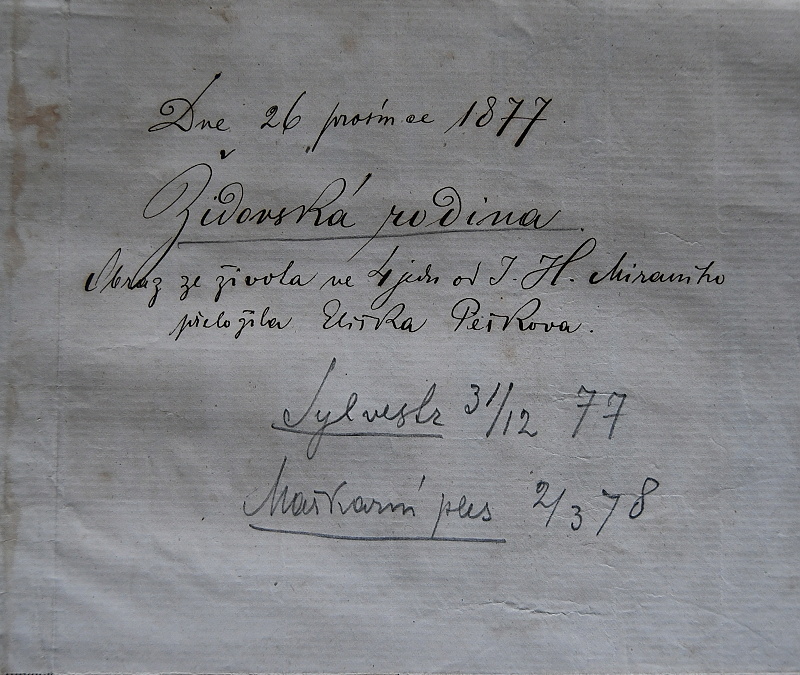 Dne 26 prosince 1877
Židovská rodina.
Obraz ze života ve 4 jedn od J. H. Miraniho
přeložila Eliška Pešková.
Sylvestr 31/12 77
Maškarní ples 2/3 78